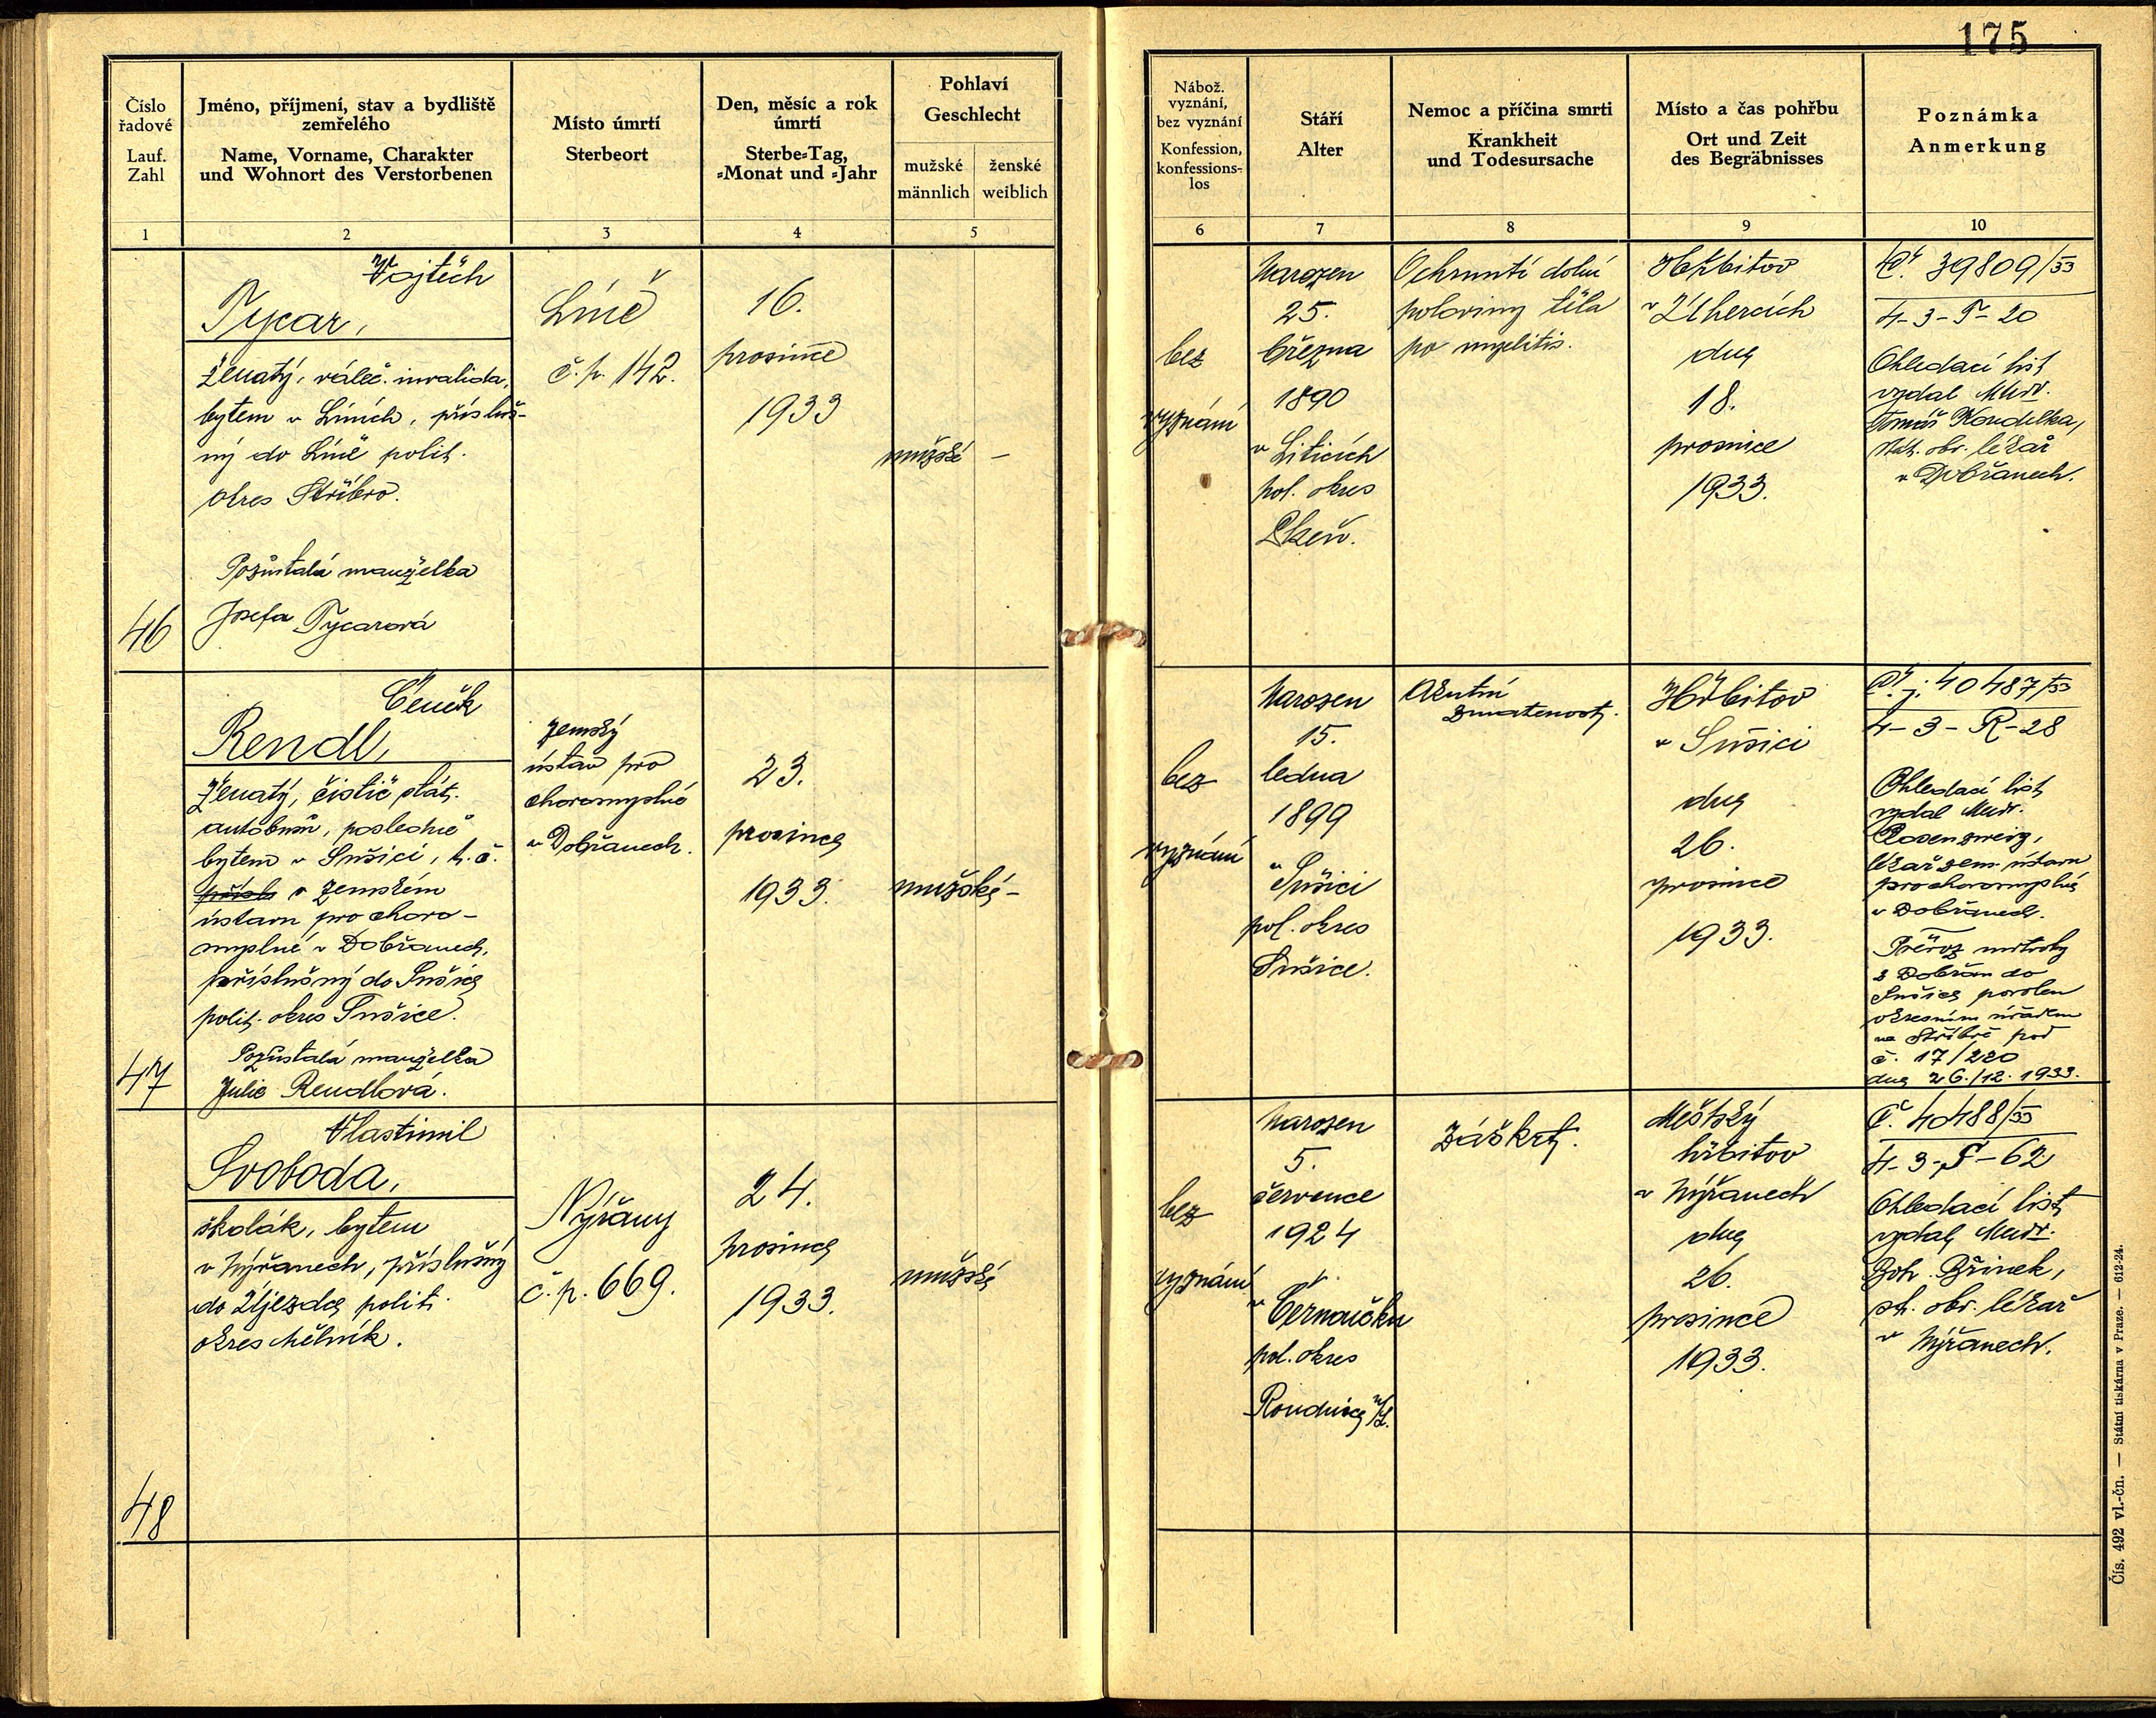 175
Číslo
řadové
Lauf.
Zahl
Jméno, příjmení, stav a bydliště
zemřelého
Name, Vorname, Charakter
und Wohnort des Verstorbenen
Místo úmrtí
Sterbeort
Den, měsíc a rok
úmrtí
Sterbe=Tag,
=Monat und =Jahr
Pohlaví
Geschlecht
mužské
männlich
ženské
weiblich
Nábož.
vyznání,
bez vyznání
Konfession,
konfessions-
los
Stáří
Alter
Nemoc a příčina smrti
Krankheit
und Todesursache
Místo a čas pohřbu
Ort und Zeit
des Begräbnisses
Poznámka
Anmerkung
1
2
3
4
5
6
7
8
9
10
46
Vojtěch
Tycar,
ženatý, váleč. invalida,
bytem v Líních, přísluš-
ný do Líně polit.
okres Stříbro.
Pozůstalá manželka
Josefa Tycarová
Líně
č.p. 142.
16.
prosince
1933
mužské –
bez
vyznání
Narozen
25.
března
1890
v Liticích
pol. okres
Plzeň.
Ochrnutí dolní
poloviny těla
po myelitis.
Hřbitov
v Úhercích
dne
18.
prosince
1933.
Č. 39809/33
4-3-T-20
Ohledací list
vydal Mudr.
Tomáš Koudelka,
stát. obv. lékař
v Dobřanech.
47
Čeněk
Rendl,
ženatý, čistič stát.
autobusů, posledně
bytem v Sušici, t.č.
přísl v Zemském
ústavu pro choro-
myslné v Dobřanech,
příslušný do Sušice
polit. okres Sušice.
Pozůstalá manželka
Julie Rendlová.
Zemský
ústav pro
choromyslné
v Dobřanech.
23.
prosince
1933.
mužské –
bez
vyznání
Narozen
15.
ledna
1899
v
Sušici
pol. okres
Sušice.
Akutní
zmatenost.
Hřbitov
v Sušici
dne
26.
prosince
1933.
Č.j. 40487/33
4-3-R-28
Ohledací list
vydal Mudr.
Rosenzweig,
lékař zem. ústavu
pro choromyslné
v Dobřanech.
Převoz mrtvoly
z Dobřan do
Sušice povolen
okresním úřadem
ve Stříbře pod
č. 17/220
dne 26./12. 1933.
48
Vlastimil
Svoboda,
školák, bytem
v Nýřanech, příslušný
do Újezda polit.
okres Mělník.
Nýřany
č.p. 669.
24.
prosince
1933.
mužské
bez
vyznání
Narozen
5.
července
1924
v
Černoučku
pol. okres
Roudnice n/L.
Záškrt.
Městský
hřbitov
v Nýřanech
dne
26.
prosince
1933.
Č. 40488/33
4-3-S-62
Ohledací list
vydal Mudr.
Boh. Březinek,
st. obv. lékař
v Nýřanech.
Čís. 492 vl.-čn. — Státní tiskárna v Praze. — 612-24.